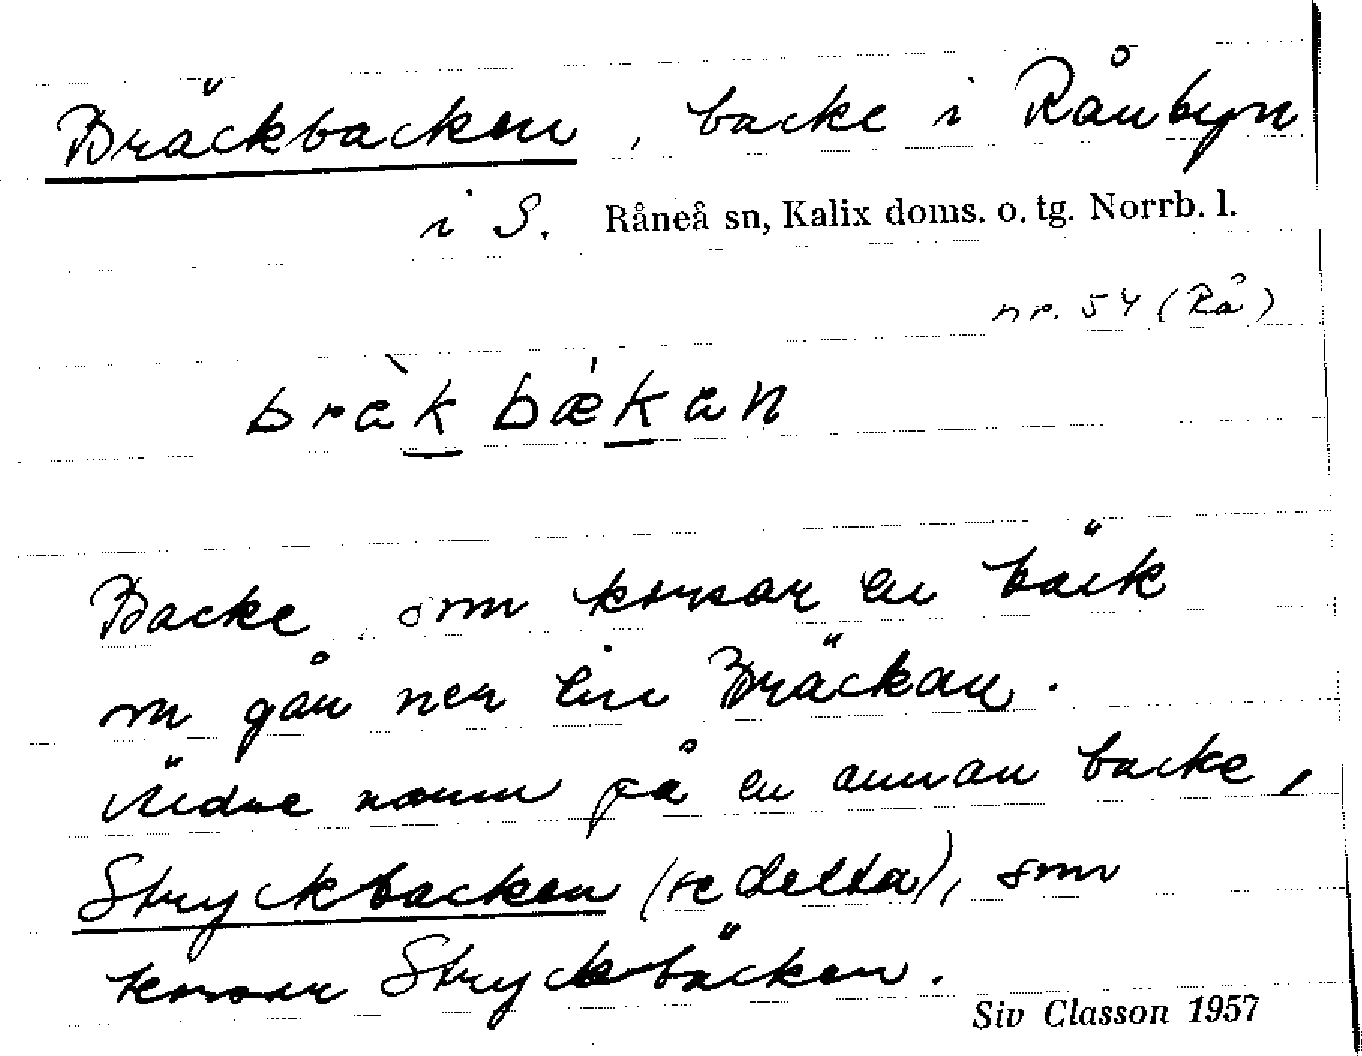 Bräckbacken, backe i Rånbyn
i S. Råneå sn, Kalix doms. o. tg. Norrb. l.
nr. 54 (Rå)
bràk bǽkan
Backe som korsar en bäck
som går ner till Bräckan.
Äldre namn på en annan backe,
Stryckbacken (se detta), som
korsar Stryckbäcken.
Siv Classon 1957